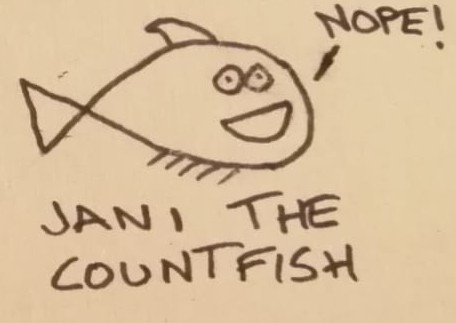 NOPE!
JANI THE
COUNTFISH